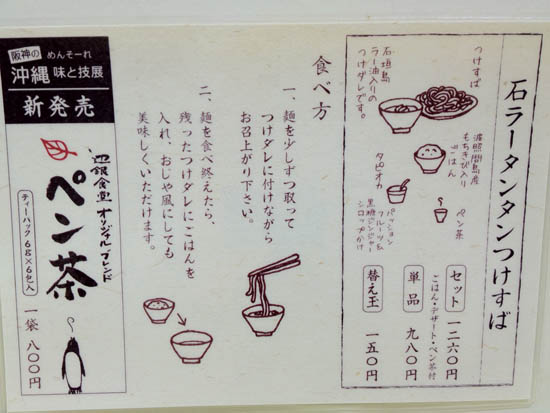 石ラータンタンつけすば
つけすば
石垣島
ラー油入りの
つけダレです。
波照間島産
もちきび入り
ごはん
ペン茶
タピオカ
パッション
フルーツ&
黒糖ジンジャー
シロップがけ
セット 一二六〇円
ごはん・デザート・ペン茶付
単品 九八〇円
替え玉 一五〇円
食べ方
一、麺を少しずつ取って
つけダレに付けながら
お召上がり下さい。
二、麺を食べ終えたら、
残ったつけダレにごはんを
入れ、おじや風にしても
美味しくいただけます。
阪神の めんそーれ
沖縄 味と技展
新発売
辺銀食堂 オリジナルブレンド
ペン茶
ティーバック 6g×6包入
一袋 八〇〇円